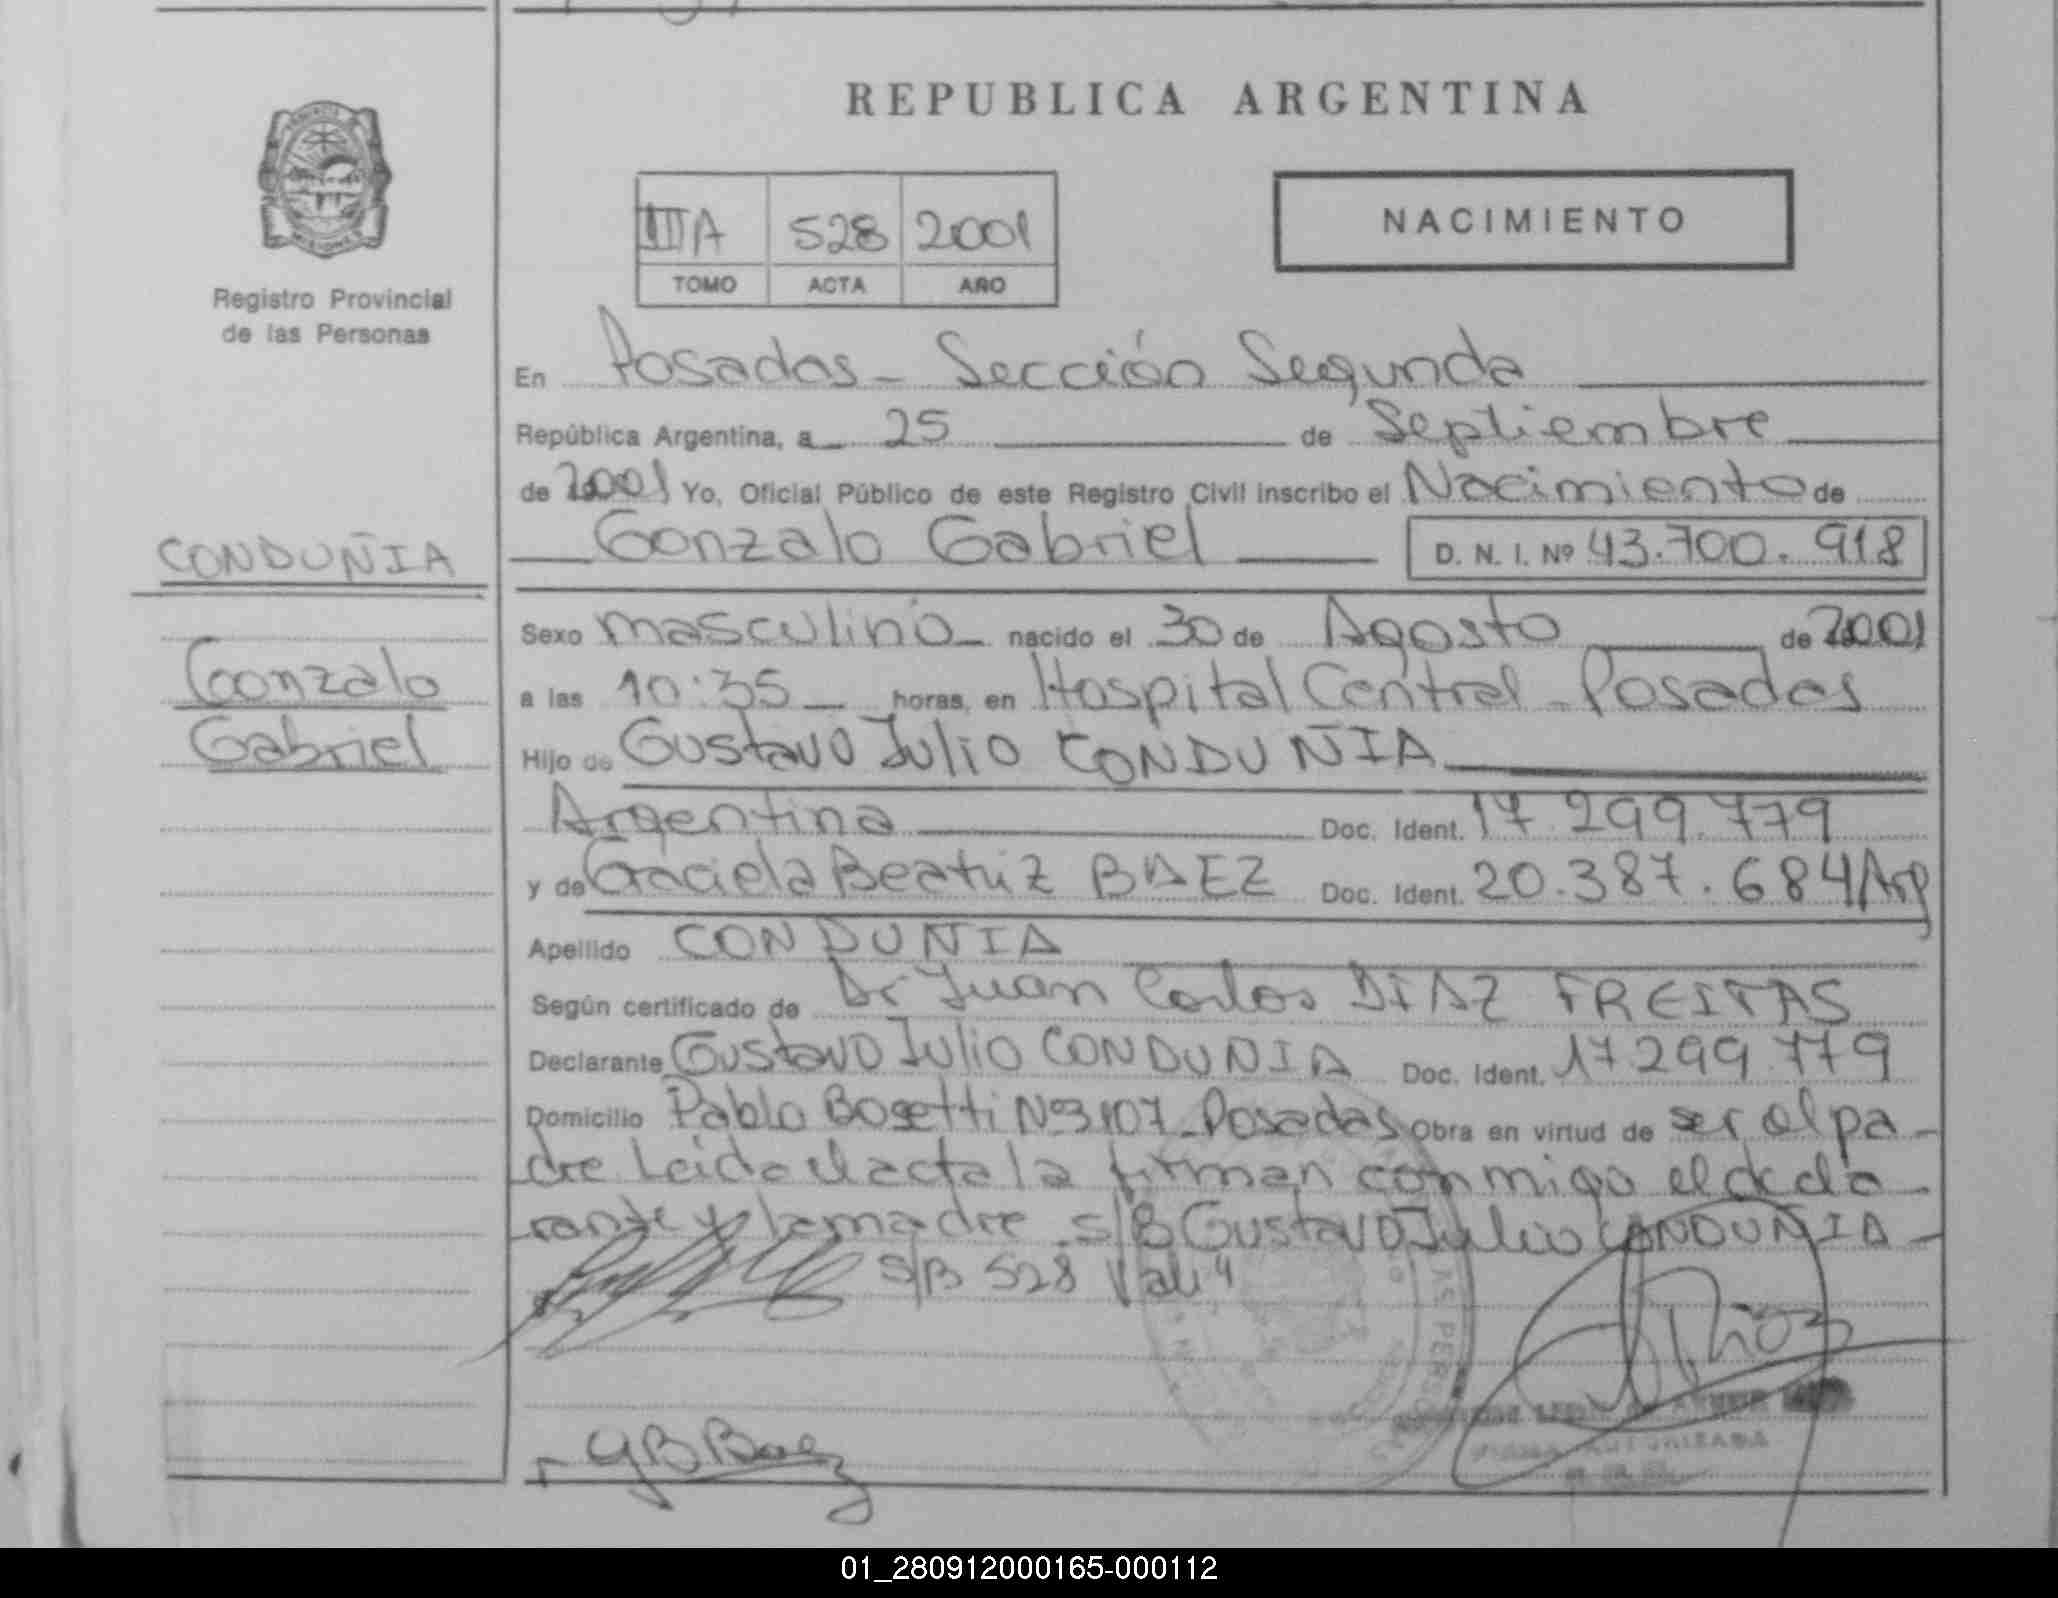 REPUBLICA ARGENTINA
IIIA 528 2001
TOMO ACTA AÑO
NACIMIENTO
Registro Provincial
de las Personas
En Posadas - Sección Segunda
República Argentina, a 25 de Septiembre
de 2001 Yo, Oficial Público de este Registro Civil inscribo el Nacimiento de
Gonzalo Gabriel D. N. I. Nº 43.700.918
CONDUÑIA
Gonzalo
Gabriel
Sexo masculino nacido el 30 de Agosto de 2001
a las 10:35 horas, en Hospital Central - Posadas
Hijo de Gustavo Julio CONDUÑIA
Argentina Doc. Ident. 17.299.779
y de Graciela Beatriz BAEZ Doc. Ident. 20.387.684 Arg
Apellido CONDUÑIA
Según certificado de Dr Juan Carlos DIAZ FREITAS
Declarante Gustavo Julio CONDUÑIA Doc. Ident. 17.299.779
Domicilio Pablo Bosetti Nº 3107 - Posadas Obra en virtud de ser el pa-
dre Leida el acta la firman conmigo el decla-
rante y la madre. S/B Gustavo Julio CONDUÑIA -
S/B 528 Vale
GBBaez
FIRMA AUTORIZADA
01_280912000165-000112